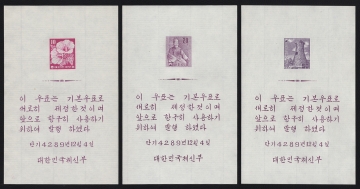 이 우표는 기본우표로
새로히 제정한것이며
앞으로 항구히 사용하기
위하여 발행 하였다
단기 4289년12월4일
대한민국체신부
이 우표는 기본우표로
새로히 제정한것이며
앞으로 항구히 사용하기
위하여 발행 하였다
단기 4289년12월4일
대한민국체신부
이 우표는 기본우표로
새로히 제정한것이며
앞으로 항구히 사용하기
위하여 발행 하였다
단기 4289년12월4일
대한민국체신부